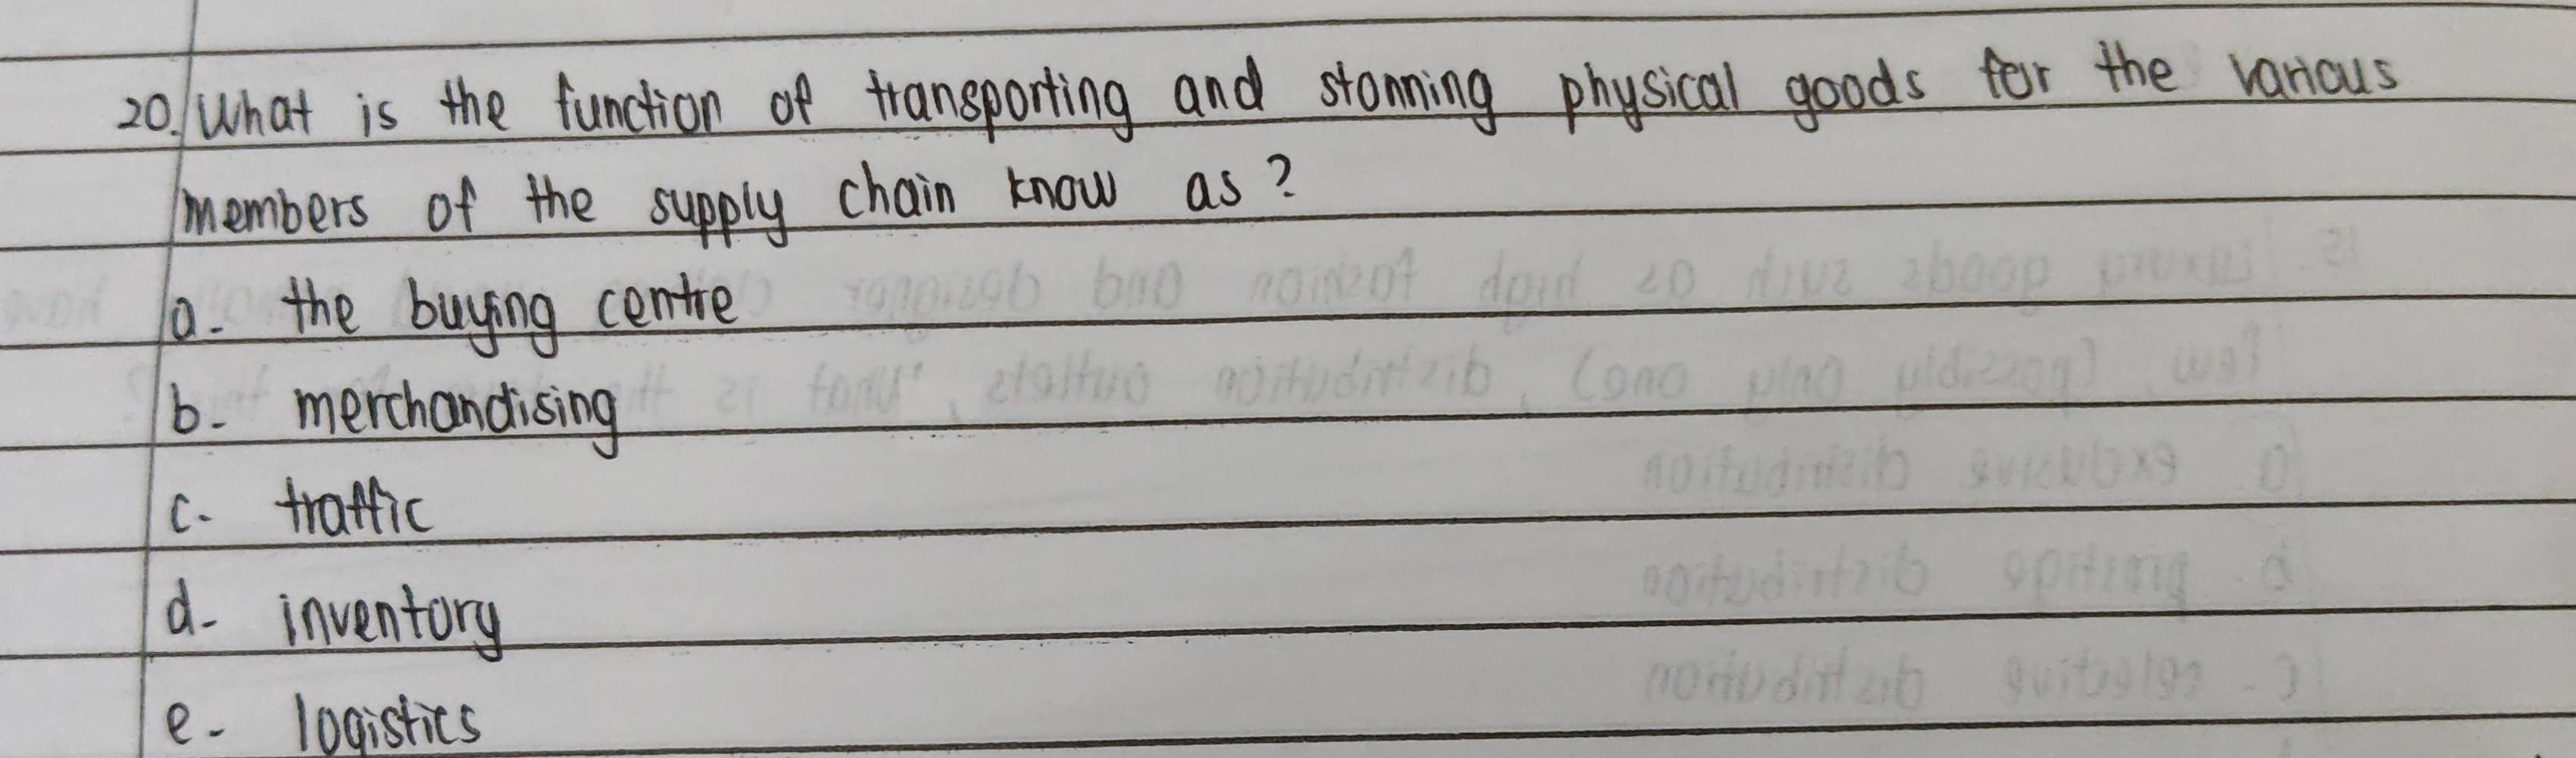 20. What is the function of transporting and stonning physical goods for the various
members of the supply chain know as ?
a. the buying centre
b. merchandising
c. traffic
d. inventory
e. logistics